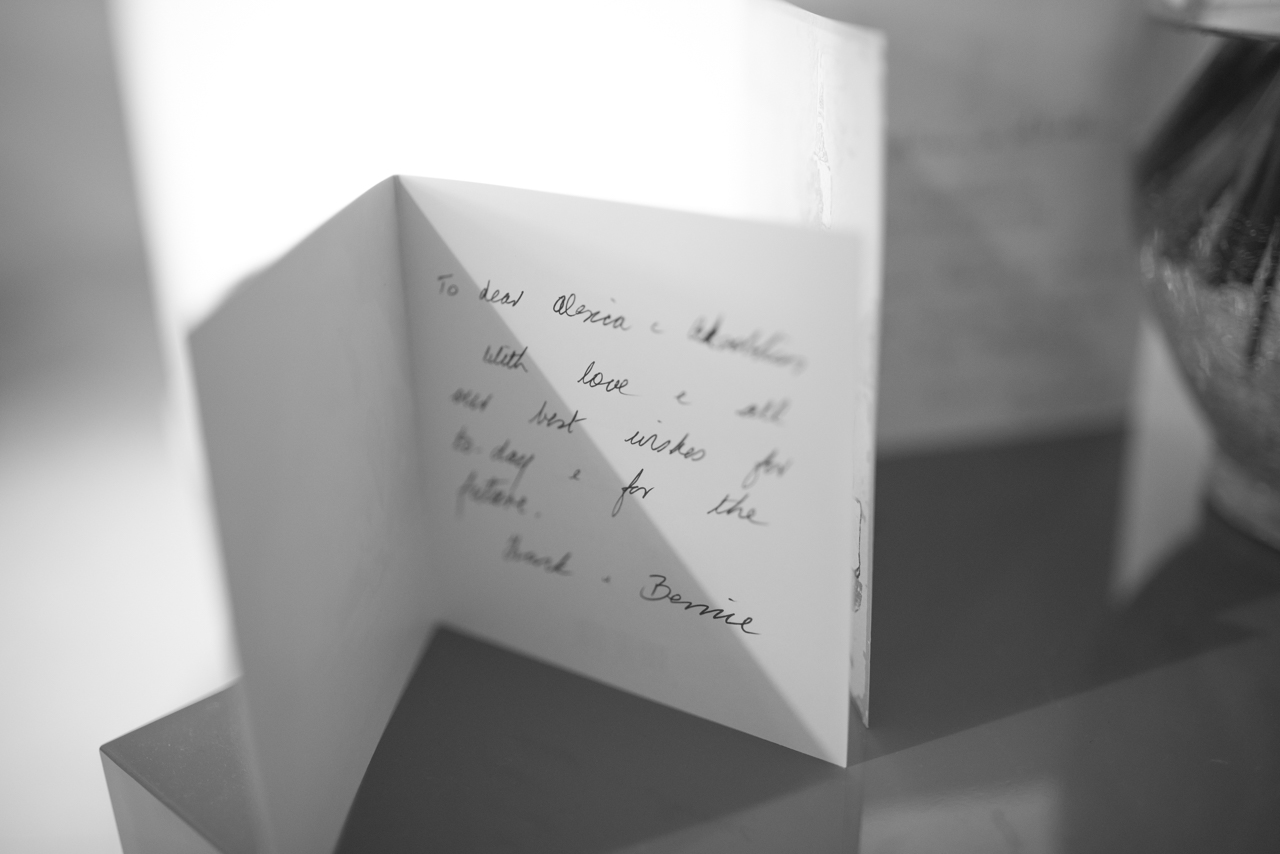 To dear Alexia &
With love & all
our best wishes for
to-day & for the
future.
Frank & Bernie